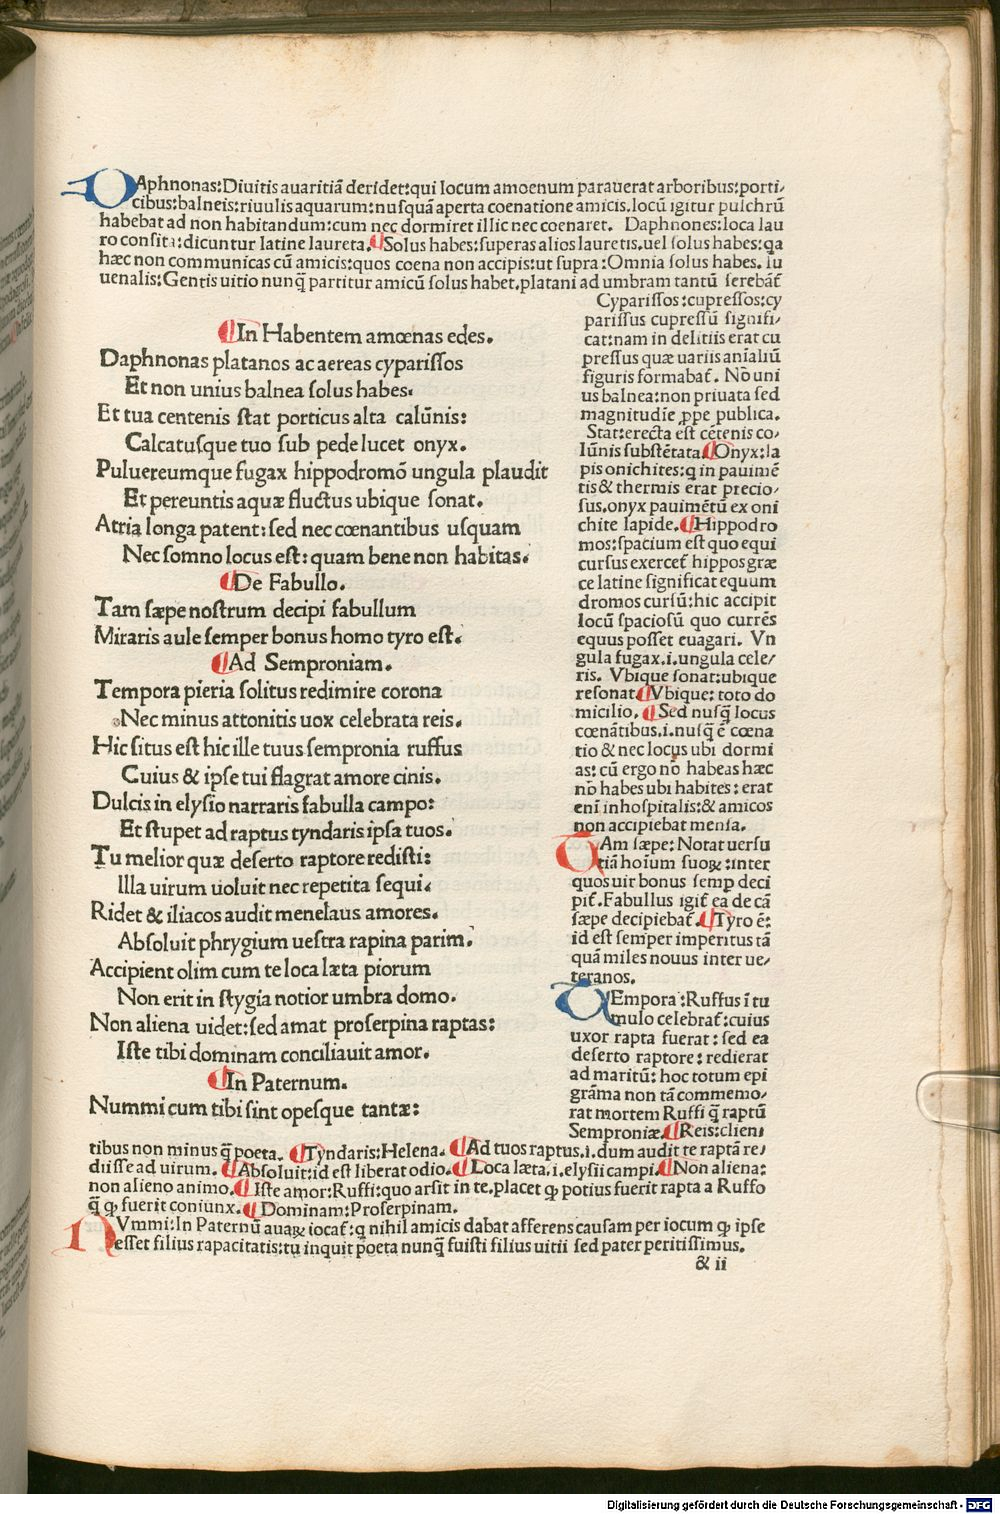 DAphnonas:Diuitis auaritiā deridet:qui locum amoenum parauerat arboribus:porti/
cibus:balneis:riuulis aquarum:nusquā aperta coenatione amicis.locū igitur pulchrū
habebat ad non habitandum:cum nec dormiret illic nec coenaret. Daphnones:loca lau
ro consita:dicuntur latine laureta.¶Solus habes:superas alios lauretis.uel solus habes:ꝗa
hæc non communicas cū amicis:quos coena non accipis:ut supra:Omnia solus habes. Iu
uenalis:Gentis uitio nunq̄ partitur amicū solus habet.platani ad umbram tantū serebāt̄
¶In Habentem amœnas edes.
Daphnonas platanos ac aereas cyparissos
Et non unius balnea solus habes.
Et tua centenis stat porticus alta calūnis:
Calcatusque tuo sub pede lucet onyx.
Puluereumque fugax hippodromō ungula plaudit
Et pereuntis aquæ fluctus ubique sonat.
Atria longa patent:sed nec cœnantibus usquam
Nec somno locus est:quam bene non habitas.
¶De Fabullo.
Tam sæpe nostrum decipi fabullum
Miraris aule semper bonus homo tyro est.
¶Ad Semproniam.
Tempora pieria solitus redimire corona
Nec minus attonitis uox celebrata reis.
Hic situs est hic ille tuus sempronia ruffus
Cuius & ipse tui flagrat amore cinis.
Dulcis in elysio narraris fabulla campo:
Et stupet ad raptus tyndaris ipsa tuos.
Tu melior quæ deserto raptore redisti:
Illa uirum uoluit nec repetita sequi.
Ridet & iliacos audit menelaus amores.
Absoluit phrygium uestra rapina parim.
Accipient olim cum te loca læta piorum
Non erit in stygia notior umbra domo.
Non aliena uidet:sed amat proserpina raptas:
Iste tibi dominam conciliauit amor.
¶In Paternum.
Nummi cum tibi sint opesque tantæ:
Cyparissos:cupressos:cy
parissus cupressū signifi/
cat:nam in delitiis erat cu
pressus quæ uariis anīaliū
figuris formabat̄. Nō uni
us balnea:non priuata sed
magnitudīe ꝓpe publica.
Stat:erecta est cētenis co/
lūnis substētata.¶Onyx:la
pis onichites:q in pauimē
tis & thermis erat precio/
sus.onyx pauimētū ex oni
chite lapide.¶Hippodro
mos:spacium est quo equi
cursus exercet̄ hippos græ
ce latine significat equum
dromos cursū:hic accipit
locū spaciosū quo currēs
equus posset euagari. Vn
gula fugax.i.ungula cele/
ris. Vbique sonat:ubique
resonat.¶Vbique: toto do
micilio.¶Sed nusq̄ locus
cœnātibus.i.nusq̄ ē cœna
tio & nec locus ubi dormi
as: cū ergo nō habeas hæc
nō habes ubi habites: erat
enī inhospitalis:& amicos
non accipiebat mensa.
TAm sæpe: Notat uersu
tiā hoīum suoꝝ:inter
quos uir bonus semp deci
pit̄.Fabullus igit̄ ea de cā
sæpe decipiebat̄.¶Tyro ē:
id est semper imperitus tā
quā miles nouus inter ue/
teranos.
TEmpora:Ruffus ī tu
mulo celebrat̄:cuius
uxor rapta fuerat: sed ea
deserto raptore: redierat
ad maritū: hoc totum epi
grāma non tā commemo/
rat mortem Ruffi q̄ raptū
Semproniæ.¶Reis:clien
tibus non minus q̄ poeta. ¶Tyndaris:Helena. ¶Ad tuos raptus.i.dum audit te raptā re/
diisse ad uirum. ¶Absoluit:id est liberat odio.¶Loca læta.i.elysii campi.¶Non aliena:
non alieno animo.¶Iste amor:Ruffi:quo arsit in te.placet ꝙ potius fuerit rapta a Ruffo
q̄ ꝙ fuerit coniunx.¶Dominam:Proserpinam.
NVmmi:In Paternū auaꝝ iocat̄:q nihil amicis dabat afferens causam per iocum ꝙ ipse
esset filius rapacitatis:tu inquit poeta nunq̄ fuisti filius uitii sed pater peritissimus.
& ii
Digitalisierung gefördert durch die Deutsche Forschungsgemeinschaft - DFG